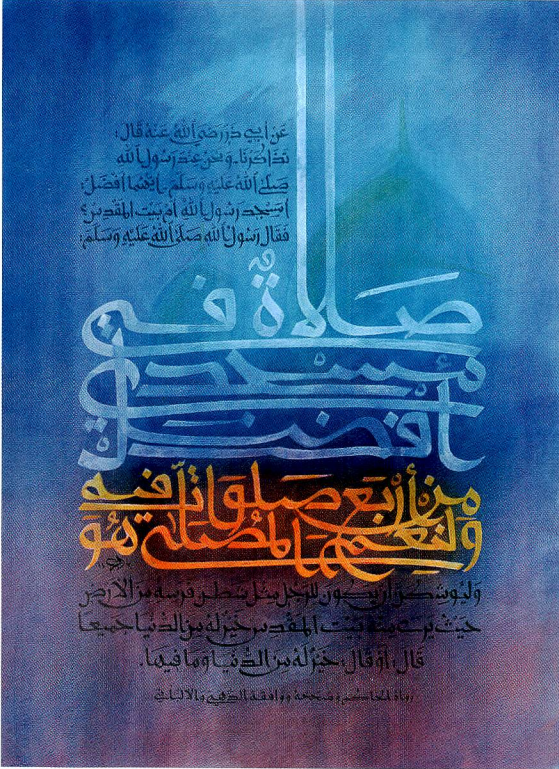 عَن أبي ذَر رَضيَ اللهُ عَنهُ قَال:
تذَاكَرنَا - وَنَحنُ عِندَ رَسُول الله
صَلى اللهُ عَليهِ وَسَلمَ - أيهُما أفضَلُ:
أمَسجد رَسُول الله أم بَيت المَقدِس؟
فَقَال رَسُول الله صَلى اللهُ عَليهِ وَسَلمَ:
صَلاةٌ في
مَسجدي
أفضَل
مِن أربَع صَلوَاتٍ فيهِ
وَلَنِعمَ المُصَلى هُوَ
وَليُوشِكَنَّ أن يكُون للرجُل مِثل شَطَن فرَسِهِ مِنَ الأرض
حَيثُ يرَى مِنهُ بَيتَ المَقدِس خَيرٌ لهُ مِنَ الدنيَا جَميعًا
قَال: أوْ قَال: خَيرٌ لهُ مِنَ الدُّنيَا وَمَا فيهَا.
رواهُ الحَاكم وصَححهُ ووافقه الذهبي والألباني